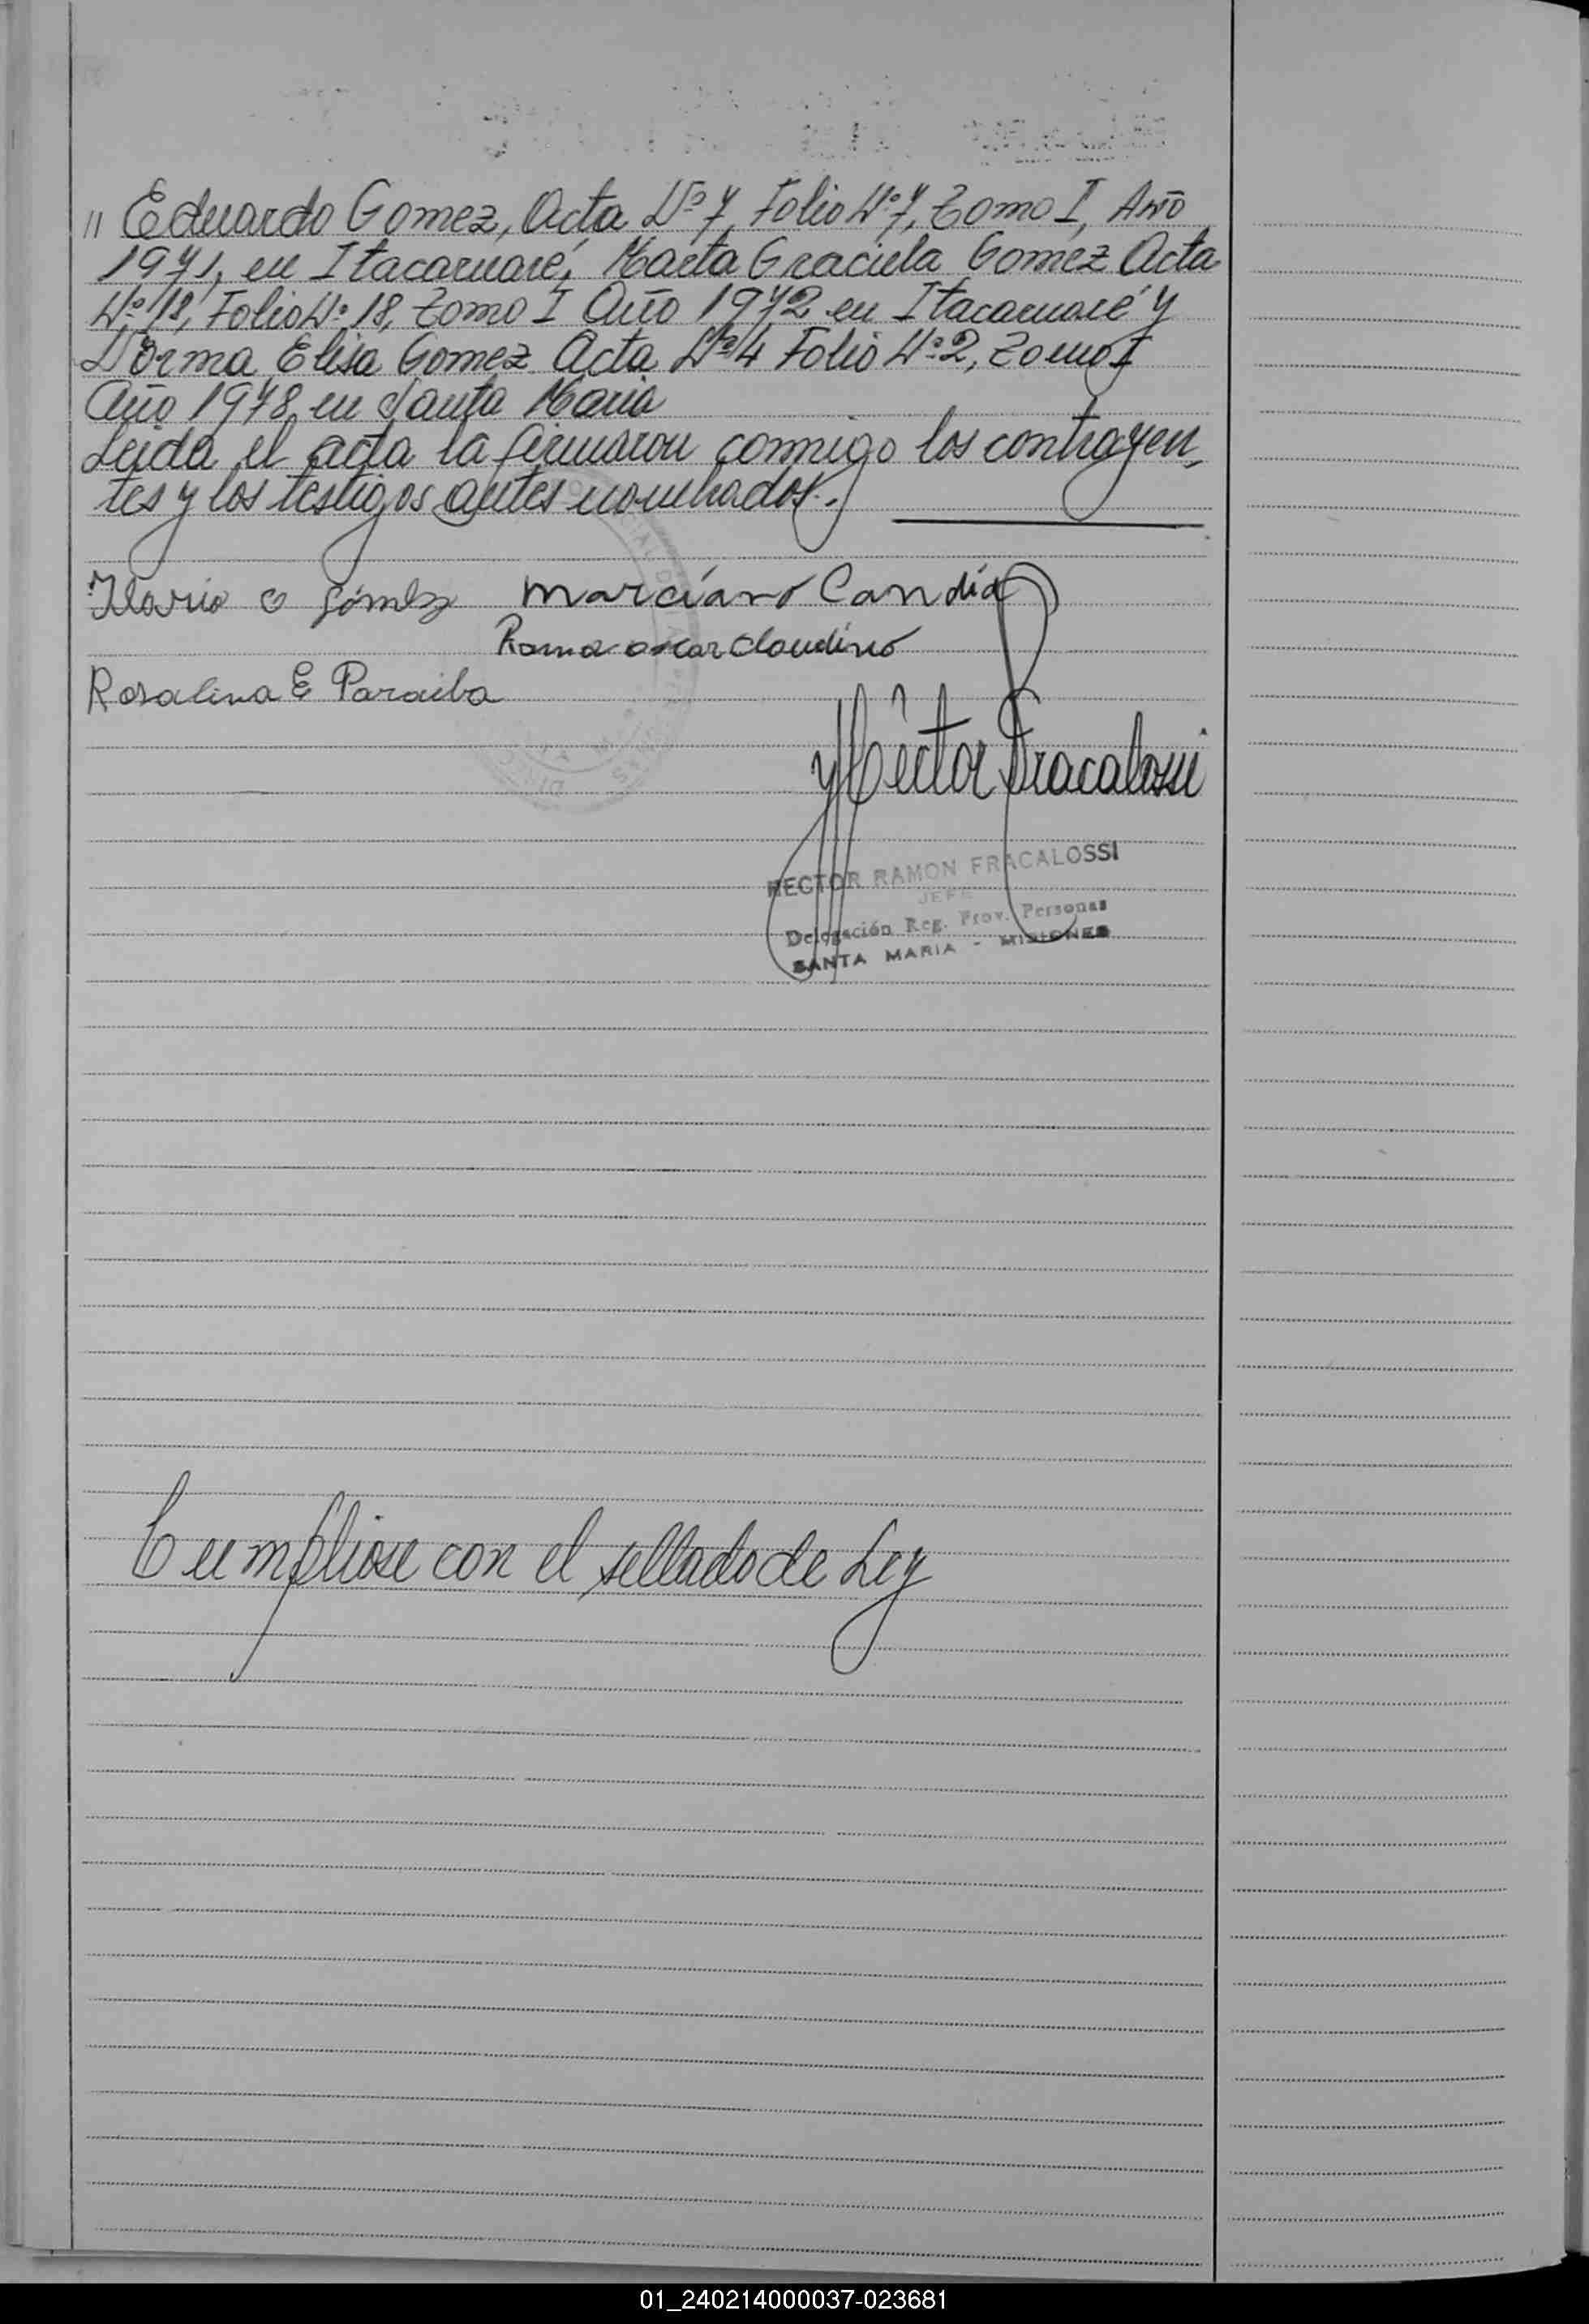 " Eduardo Gomez, Acta Nº 7, Folio Nº 7, Tomo I, Año
1971, en Itacaruaré, Marta Graciela Gomez Acta
Nº 18, Folio Nº 18, Tomo I Año 1972 en Itacaruaré y
Norma Elisa Gomez Acta Nº 4 Folio Nº 2, Tomo I
Año 1978 en Santa Maria
Leida el acta la firmaron conmigo los contrayen
tes y los testigos antes nombrados.
Ilario O Gómez Marciano Candia
Ramon oscar Claudino
Rosalina E Paraiba
Héctor Fracalossi
HECTOR RAMON FRACALOSSI
JEFE
Delegación Reg. Prov. Personas
SANTA MARIA - MISIONES
Cumpliose con el sellado de Ley
01_240214000037-023681